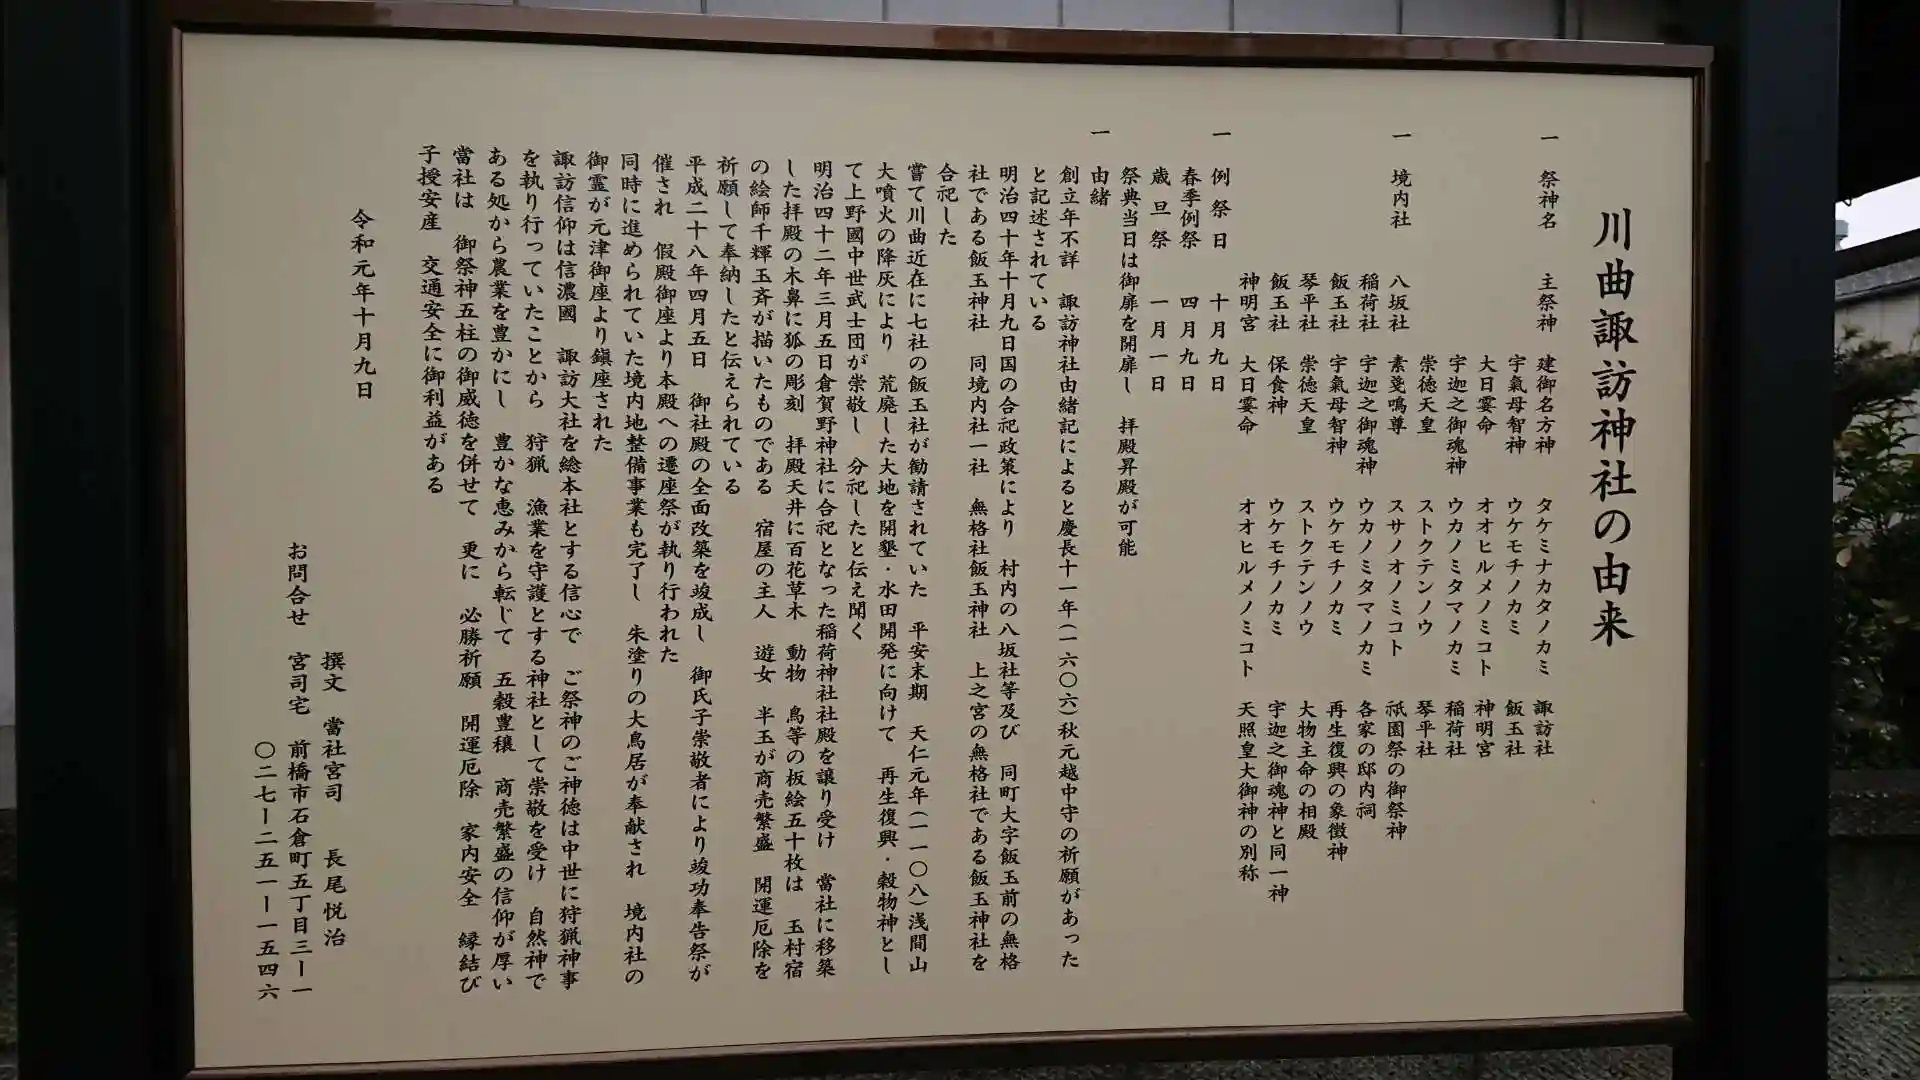 川曲諏訪神社の由来
一 祭神名 主祭神 建御名方神 タケミナカタノカミ 諏訪社
宇氣母智神 ウケモチノカミ 飯玉社
大日孁命 オオヒルメノミコト 神明宮
宇迦之御魂神 ウカノミタマノカミ 稲荷社
崇徳天皇 ストクテンノウ 琴平社
一 境内社 八坂社 素戔鳴尊 スサノオノミコト 祇園祭の御祭神
稲荷社 宇迦之御魂神 ウカノミタマノカミ 各家の邸内祠
飯玉社 宇氣母智神 ウケモチノカミ 再生復興の象徴神
琴平社 崇徳天皇 ストクテンノウ 大物主命の相殿
飯玉社 保食神 ウケモチノカミ 宇迦之御魂神と同一神
神明宮 大日孁命 オオヒルメノミコト 天照皇大御神の別称
一 例祭日 十月九日
春季例祭 四月九日
歳旦祭 一月一日
祭典当日は御扉を開扉し 拝殿昇殿が可能
一 由緒
創立年不詳 諏訪神社由緒記によると慶長十一年(一六〇六)秋元越中守の祈願があった
と記述されている
明治四十年十月九日国の合祀政策により 村内の八坂社等及び 同町大字飯玉前の無格
社である飯玉神社 同境内社一社 無格社飯玉神社 上之宮の無格社である飯玉神社を
合祀した
嘗て川曲近在に七社の飯玉社が勧請されていた 平安末期 天仁元年(一一〇八)浅間山
大噴火の降灰により 荒廃した大地を開墾・水田開発に向けて 再生復興・穀物神とし
て上野國中世武士団が崇敬し 分祀したと伝え聞く
明治四十二年三月五日倉賀野神社に合祀となった稲荷神社社殿を譲り受け 當社に移築
した拝殿の木鼻に狐の彫刻 拝殿天井に百花草木 動物 鳥等の板絵五十枚は 玉村宿
の絵師千輝玉斉が描いたものである 宿屋の主人 遊女 半玉が商売繁盛 開運厄除を
祈願して奉納したと伝えられている
平成二十八年四月五日 御社殿の全面改築を竣成し 御氏子崇敬者により竣功奉告祭が
催され 假殿御座より本殿への遷座祭が執り行われた
同時に進められていた境内地整備事業も完了し 朱塗りの大鳥居が奉献され 境内社の
御霊が元津御座より鎮座された
諏訪信仰は信濃國 諏訪大社を総本社とする信心で ご祭神のご神徳は中世に狩猟神事
を執り行っていたことから 狩猟 漁業を守護とする神社として崇敬を受け 自然神で
ある処から農業を豊かにし 豊かな恵みから転じて 五穀豊穣 商売繁盛の信仰が厚い
當社は 御祭神五柱の御威徳を併せて 更に 必勝祈願 開運厄除 家内安全 縁結び
子授安産 交通安全に御利益がある
令和元年十月九日
撰文 當社宮司 長尾悦治
お問合せ 宮司宅 前橋市石倉町五丁目三ー一
〇二七ー二五一ー一五四六